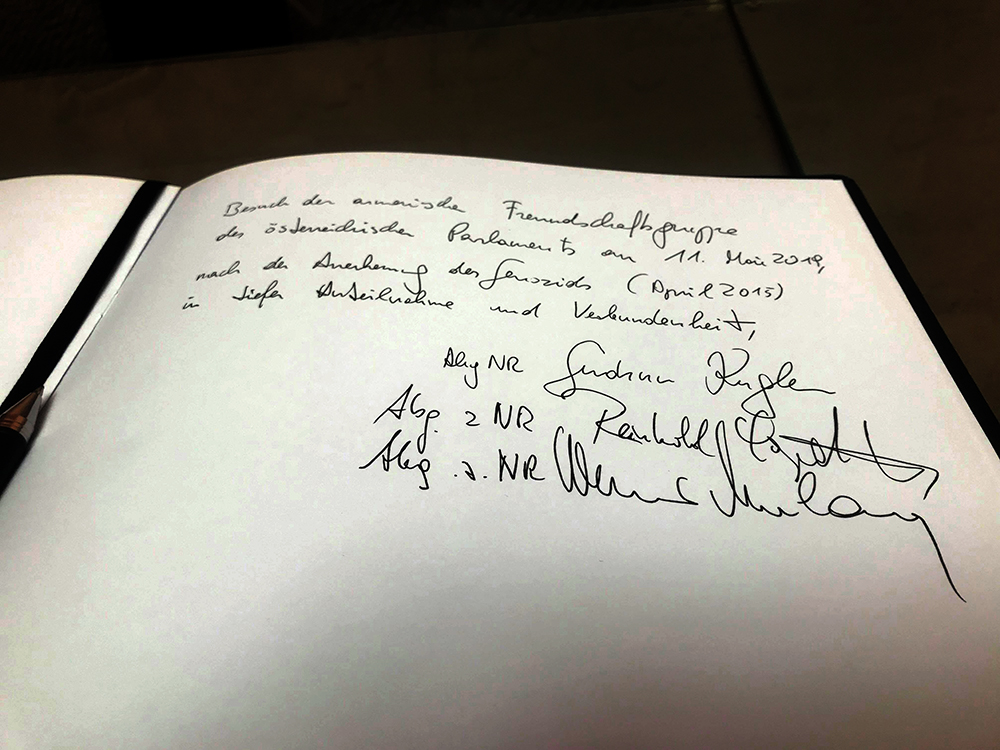 Besuch der armenische Freundschaftsgruppe
des österreichischen Parlaments am 11. Mai 2019,
nach der Anerkennung des Genozids (April 2015)
in tiefer Anteilnahme und Verbundenheit,
Abg NR Gudrun Kugler
Abg. z NR Reinhold
Abg. z. NR